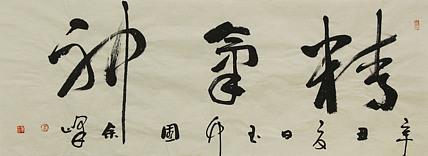 精氣神
辛丑夏日玉竹余峰